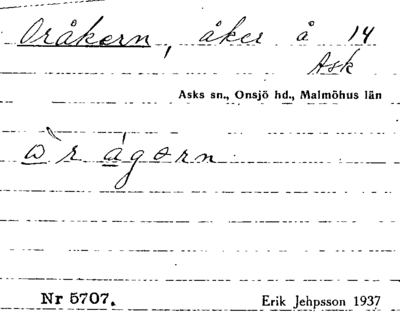 Oråkern, åker å 14
Ask
Asks sn., Onsjö hd., Malmöhus län
ò̱r á̱gərn
Nr 5707.
Erik Jehpsson 1937